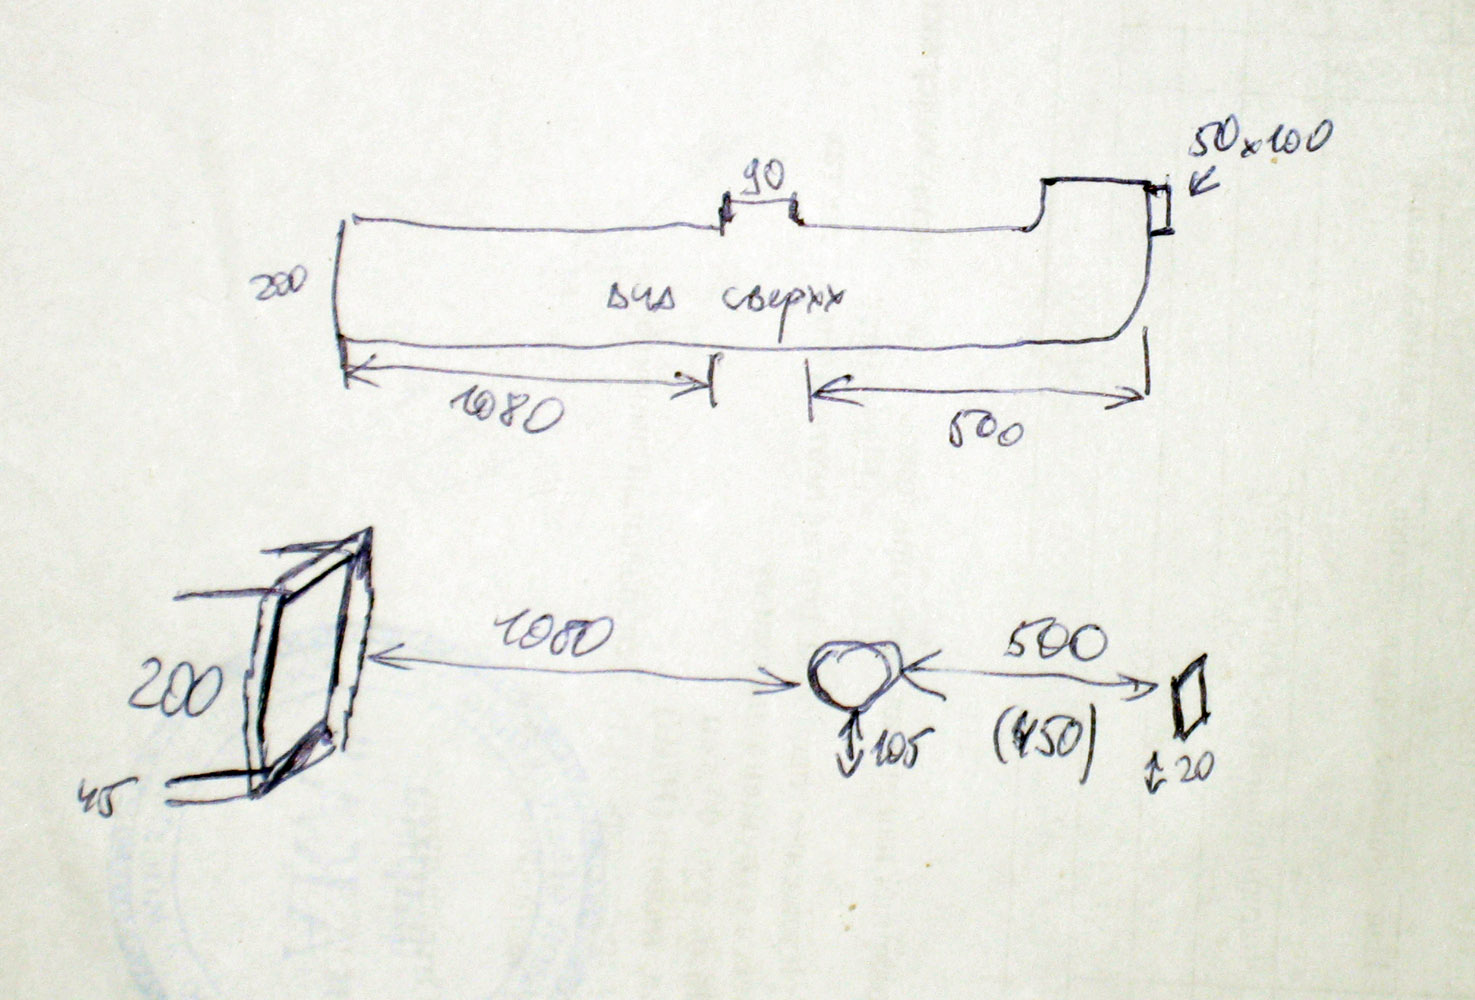 50x100
90
200
вид сверху
1080
500
1080
500
200
(450)
105
20
45